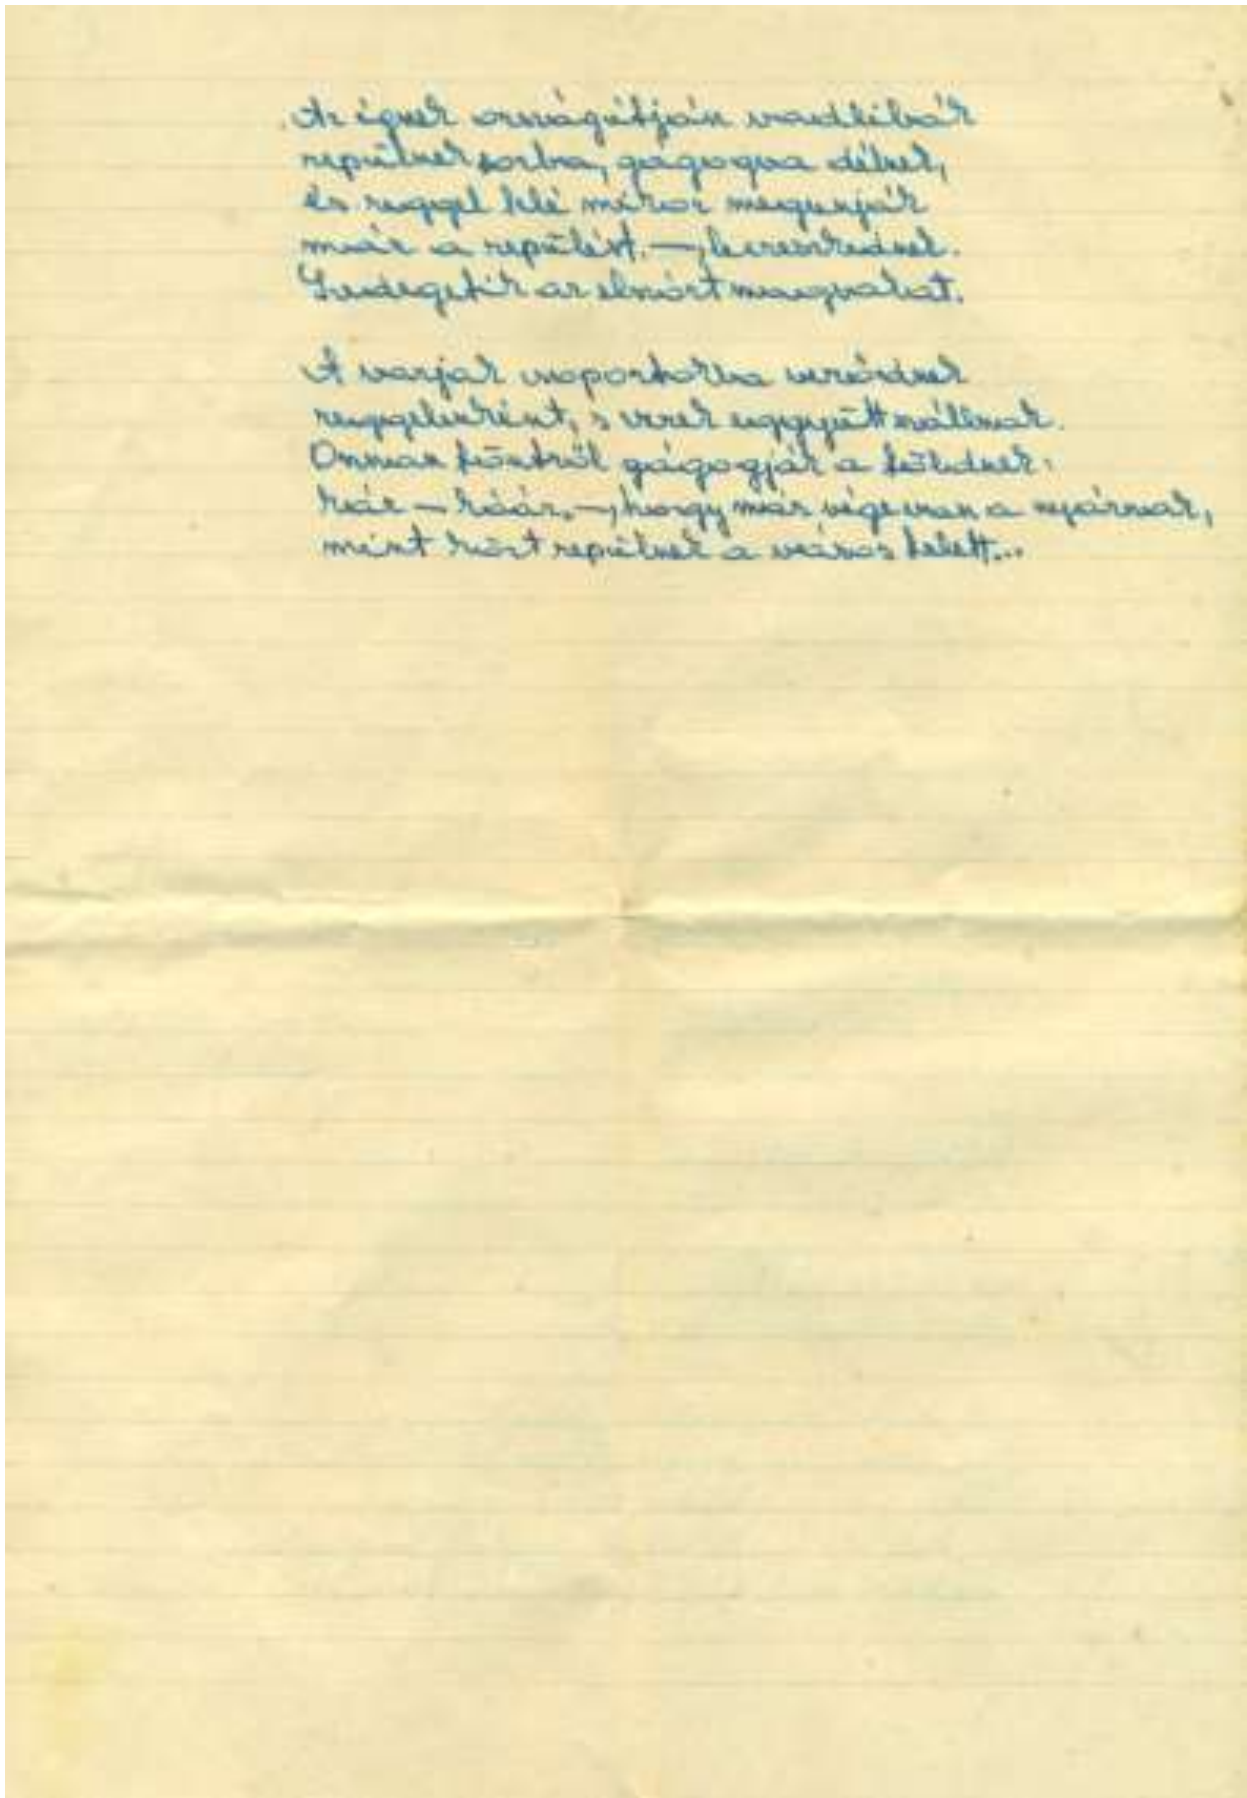 Az égnek országútján vadlibák
repülnek sorba, gágogva délnek,
és reggel felé mikor megunják
már a repülést, –, leereszkednek.
Szedegetik az elszórt magvakat.

A varjak csoportokba verődnek
reggelenként, s ezek eggyütt szállnak.
Onnan föntről gágogják a földnek:
kár – káár, –, hogy már vége van a nyárnak,
mint kört repülnek a város felett...